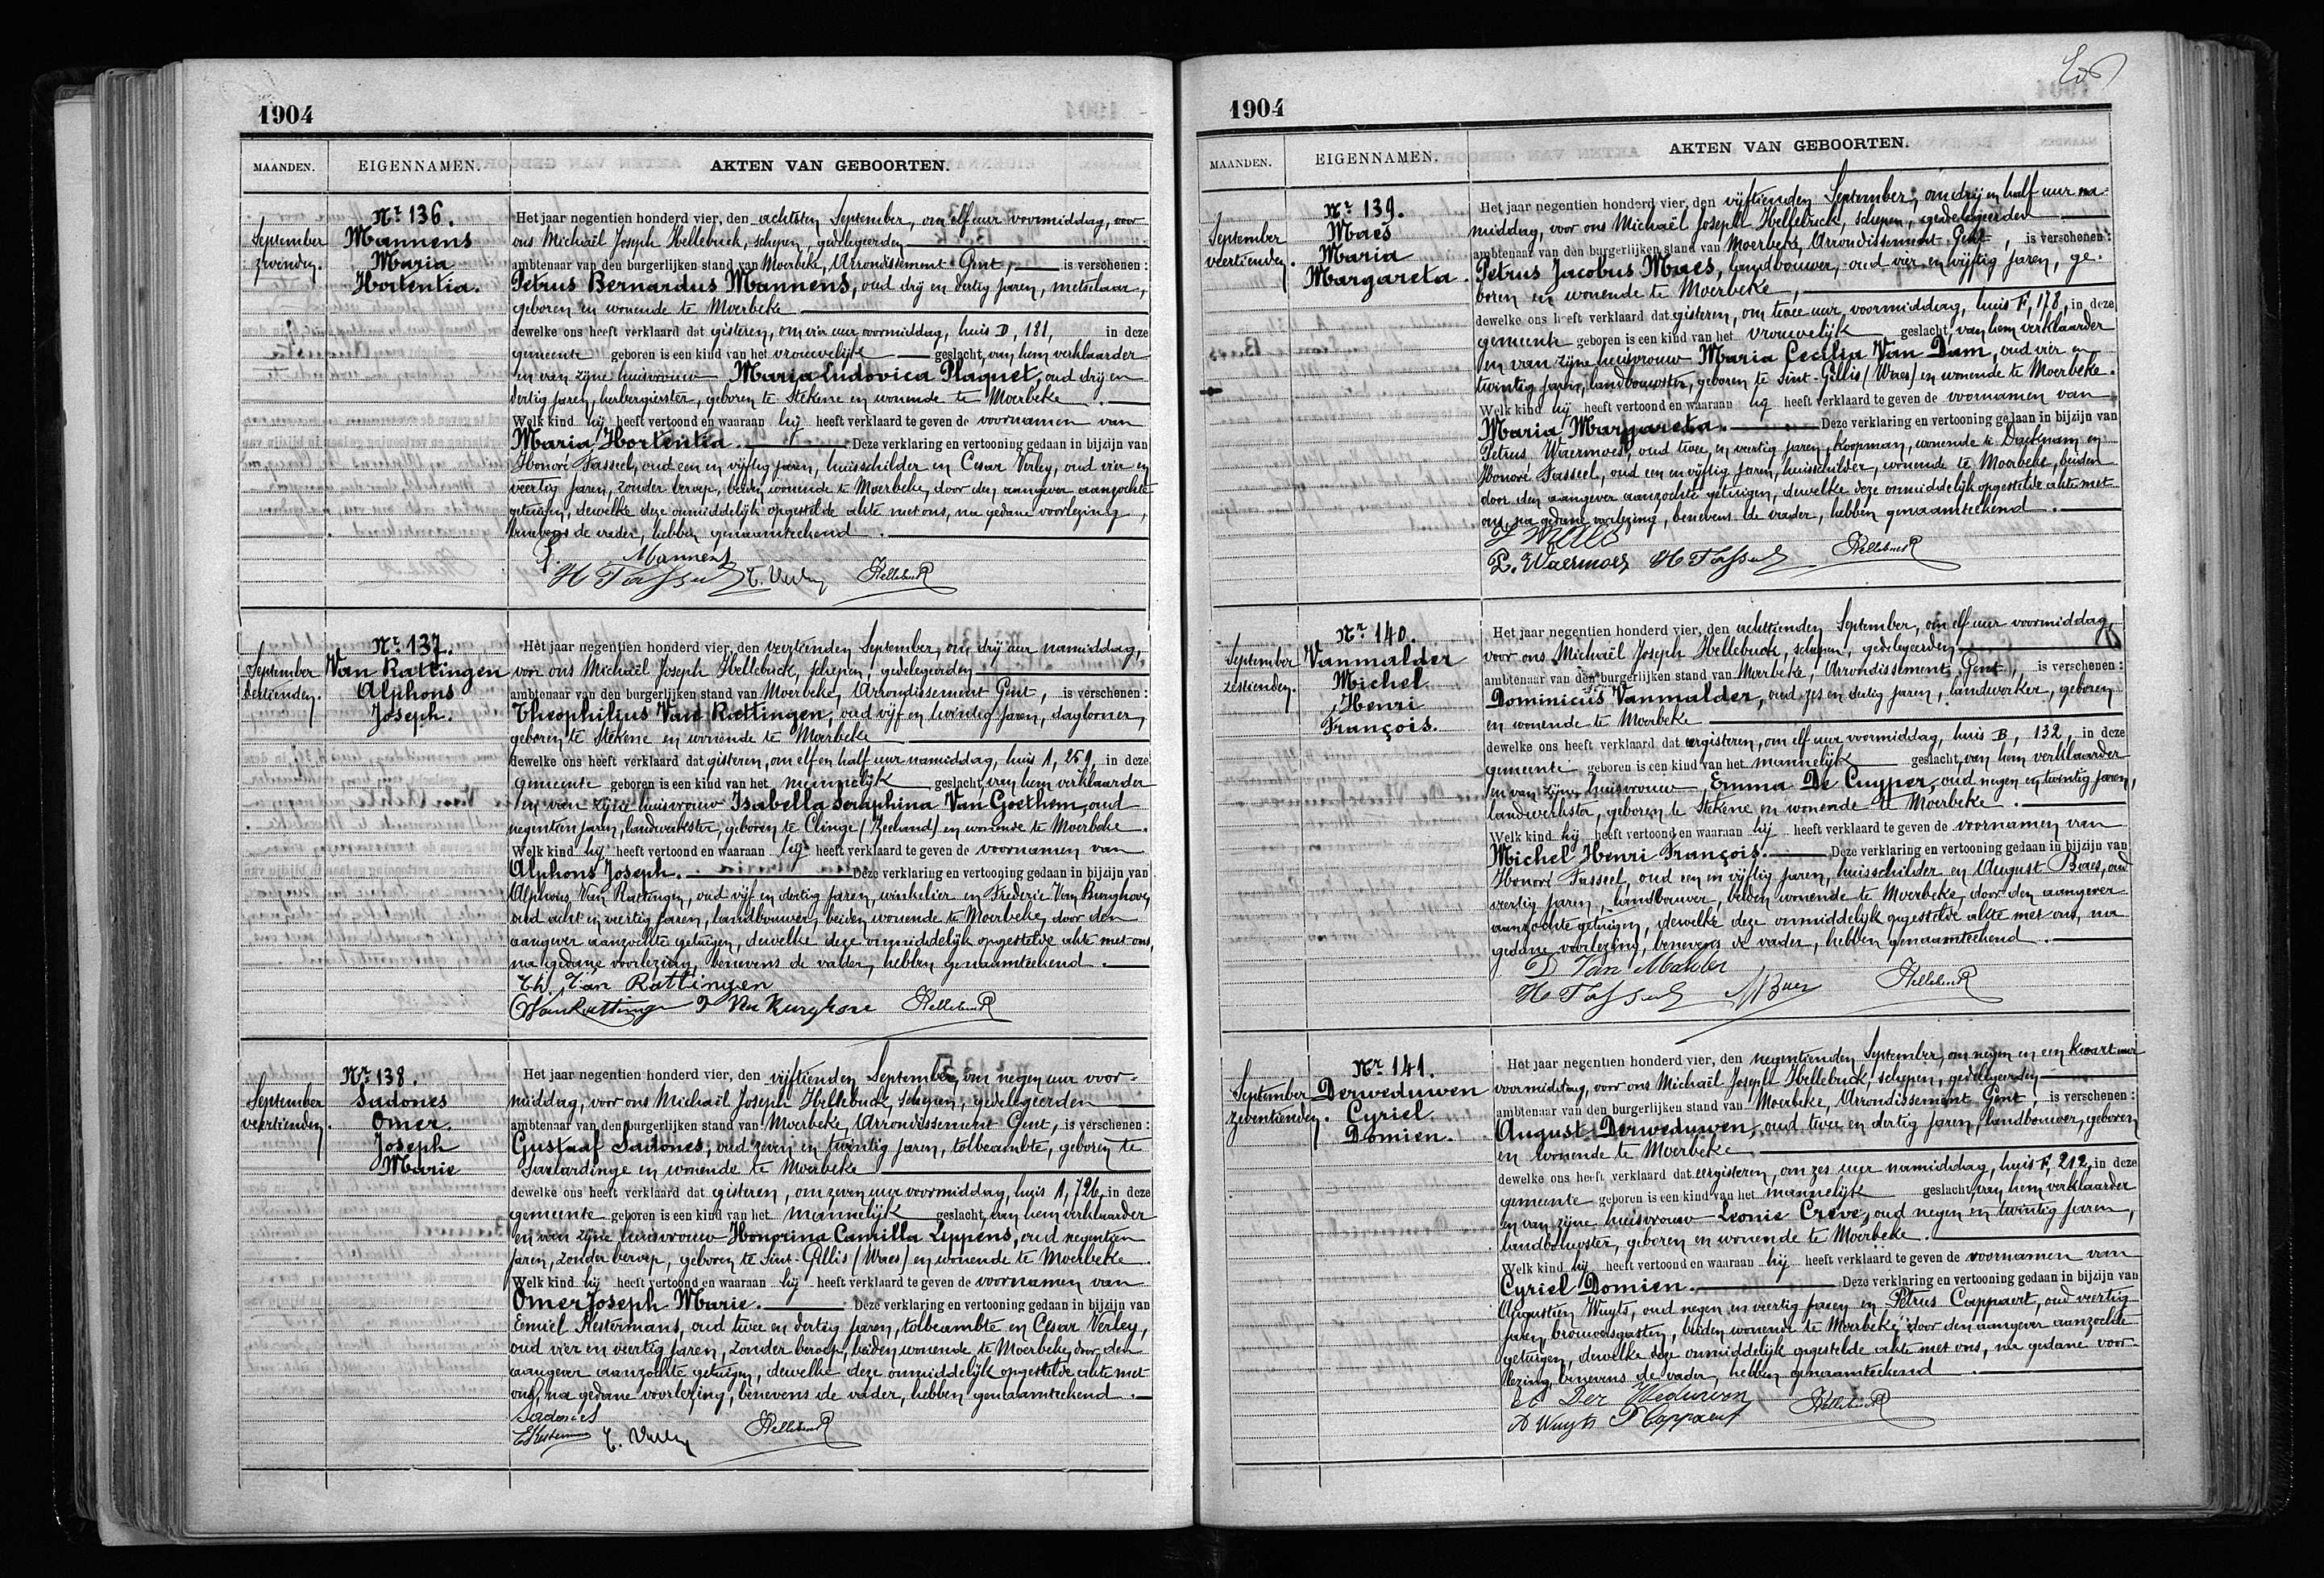 1904
MAANDEN. EIGENNAMEN. AKTEN VAN GEBOORTEN.
September
zevenden.
Nr 136.
Mannens
Maria
Hortentia.
Het jaar negentien honderd vier, den achtsten September, om elf uur voormiddag, voor
ons Michaël Joseph Hellebuck, schepen, gedelegeerden
ambtenaar van den burgerlijken stand van Moerbeke, Arrondissement Gent, is verschenen:
Petrus Bernardus Mannens, oud drij en dertig jaren, metselaar,
geboren en wonende te Moerbeke
dewelke ons heeft verklaard dat gisteren, om vier uur voormiddag, huis D, 181, in deze
gemeente geboren is een kind van het vrouwelijk geslacht, van hem verklaarder
en van zijne huisvrouw Maria Ludovica Plaquet, oud drij en
dertig jaren, herbergierster, geboren te Stekene en wonende te Moerbeke.
Welk kind hij heeft vertoond en waaraan hij heeft verklaard te geven de voornamen van
Maria Hortentia. Deze verklaring en vertooning gedaan in bijzijn van
Honoré Tasseel, oud een en vijftig jaren, huisschilder en Cesar Verley, oud vier en
veertig jaren, zonder beroep, beiden wonende te Moerbeke, door den aangever aanzochte
getuigen, dewelke deze onmiddelijk opgestelde akte met ons, na gedane voorlezing,
benevens de vader, hebben genaamteekend.
P. Mannens
H Tasseel C. Verley Hellebuck
September
dertienden.
Nr 137.
Van Rattingen
Alphons
Joseph.
Het jaar negentien honderd vier, den veertienden September, om drij uur namiddag,
voor ons Michaël Joseph Hellebuck, schepen, gedelegeerden
ambtenaar van den burgerlijken stand van Moerbeke, Arrondissement Gent, is verschenen:
Theophilius Van Rattingen, oud vijf en twintig jaren, daglooner,
geboren te Stekene en wonende te Moerbeke
dewelke ons heeft verklaard dat gisteren, om elf en half uur namiddag, huis A, 259, in deze
gemeente geboren is een kind van het mannelijk geslacht, van hem verklaarder
en van zijne huisvrouw Isabella Seraphina Van Goethem, oud
negentien jaren, landwerkster, geboren te Clinge (Zeeland) en wonende te Moerbeke.
Welk kind hij heeft vertoond en waaraan hij heeft verklaard te geven de voornamen van
Alphons Joseph. Deze verklaring en vertooning gedaan in bijzijn van
Alphons Van Rattingen, oud vijf en dertig jaren, winkelier en Frederic Van Burghove,
oud acht en veertig jaren, landbouwer, beiden wonende te Moerbeke, door den
aangever aanzochte getuigen, dewelke deze onmiddelijk opgestelde akte met ons,
na gedane voorlezing, benevens de vader, hebben genaamteekend.
Th. Van Rattingen
VanRattinge Hellebuck
September
veertienden.
Nr 138.
Sadones
Omer.
Joseph
Marie
Het jaar negentien honderd vier, den vijftienden September, om negen uur voor-
middag, voor ons Michaël Joseph Hellebuck, schepen, gedelegeerden
ambtenaar van den burgerlijken stand van Moerbeke, Arrondissement Gent, is verschenen:
Gustaaf Sadones, oud zeven en twintig jaren, tolbeambte, geboren te
Sarlardinge en wonende te Moerbeke
dewelke ons heeft verklaard dat gisteren, om zeven uur voormiddag, huis A, 726, in deze
gemeente geboren is een kind van het mannelijk geslacht, van hem verklaarder
en van zijne huisvrouw Honorina Camilla Lippens, oud negentien
jaren, zonder beroep, geboren te Sint-Gillis (Waes) en wonende te Moerbeke.
Welk kind hij heeft vertoond en waaraan hij heeft verklaard te geven de voornamen van
Omer Joseph Marie. Deze verklaring en vertooning gedaan in bijzijn van
Emiel Kestermans, oud twee en dertig jaren, tolbeambte en Cesar Verley,
oud vier en veertig jaren, zonder beroep, beiden wonende te Moerbeke, door den
aangever aanzochte getuigen, dewelke deze onmiddelijk opgestelde akte met
ons, na gedane voorlezing, benevens de vader, hebben genaamteekend.
Sadones
EKestermans C. Verley Hellebuck
1904
MAANDEN. EIGENNAMEN. AKTEN VAN GEBOORTEN.
September
veertienden.
Nr 139.
Maes
Maria
Margareta.
Het jaar negentien honderd vier, den vijftienden September, om drij en half uur na-
middag, voor ons Michaël Joseph Hellebuck, schepen, gedelegeerden
ambtenaar van den burgerlijken stand van Moerbeke, Arrondissement Gent, is verschenen:
Petrus Jacobus Maes, landbouwer, oud vier en vijftig jaren, ge-
boren en wonende te Moerbeke,
dewelke ons heeft verklaard dat gisteren, om twee uur voormiddag, huis F, 178, in deze
gemeente geboren is een kind van het vrouwelijk geslacht, van hem verklaarder
en van zijne huisvrouw Maria Cecilia Van Dam, oud vier en
twintig jaren, landbouwster, geboren te Sint-Gillis (Waes) en wonende te Moerbeke.
Welk kind hij heeft vertoond en waaraan hij heeft verklaard te geven de voornamen van
Maria Margareta. Deze verklaring en vertooning gedaan in bijzijn van
Petrus Waermoes, oud twee en veertig jaren, koopman, wonende te Dacknam en
Honoré Tasseel, oud een en vijftig jaren, huisschilder, wonende te Moerbeke, beiden
door den aangever aanzochte getuigen, dewelke deze onmiddelijk opgestelde akte met
ons, na gedane voorlezing, benevens de vader, hebben genaamteekend.
P. Waermoes H Tasseel Hellebuck
September
zestienden.
Nr 140.
Vanmalder
Michel
Henri
François.
Het jaar negentien honderd vier, den achttienden September, om elf uur voormiddag,
voor ons Michaël Joseph Hellebuck, schepen, gedelegeerden
ambtenaar van den burgerlijken stand van Moerbeke, Arrondissement Gent, is verschenen:
Dominicus Vanmalder, oud zes en dertig jaren, landwerker, geboren
en wonende te Moerbeke
dewelke ons heeft verklaard dat eergisteren, om elf uur voormiddag, huis B, 132, in deze
gemeente geboren is een kind van het mannelijk geslacht, van hem verklaarder
en van zijne huisvrouw Emma De Cuyper, oud negen en twintig jaren,
landwerkster, geboren te Stekene en wonende te Moerbeke.
Welk kind hij heeft vertoond en waaraan hij heeft verklaard te geven de voornamen van
Michel Henri François. Deze verklaring en vertooning gedaan in bijzijn van
Honoré Tasseel, oud een en vijftig jaren, huisschilder en August Baes, oud
veertig jaren, landbouwer, beiden wonende te Moerbeke, door den aangever
aanzochte getuigen, dewelke deze onmiddelijk opgestelde akte met ons, na
gedane voorlezing, benevens de vader, hebben genaamteekend.
D Van Malder
H Tasseel A Baes Hellebuck
September
zeventienden.
Nr 141.
Derweduwen
Cyriel
Domien.
Het jaar negentien honderd vier, den negentienden September, om negen en een kwart uur
voormiddag, voor ons Michaël Joseph Hellebuck, schepen, gedelegeerden
ambtenaar van den burgerlijken stand van Moerbeke, Arrondissement Gent, is verschenen:
August Derweduwen, oud twee en dertig jaren, landbouwer, geboren
en wonende te Moerbeke.
dewelke ons heeft verklaard dat eergisteren, om zes uur namiddag, huis F, 212, in deze
gemeente geboren is een kind van het mannelijk geslacht, van hem verklaarder
en van zijne huisvrouw Leonie Creve, oud negen en twintig jaren,
landbouwster, geboren en wonende te Moerbeke.
Welk kind hij heeft vertoond en waaraan hij heeft verklaard te geven de voornamen van
Cyriel Domien. Deze verklaring en vertooning gedaan in bijzijn van
Augustien Wuyts, oud negen en veertig jaren en Petrus Cappaert, oud veertig
jaren, brouwersgasten, beiden wonende te Moerbeke, door den aangever aanzochte
getuigen, dewelke deze onmiddelijk opgestelde akte met ons, na gedane voor-
lezing, benevens de vader, hebben genaamteekend.
A Der Weduwen
A Wuyts P Cappaert Hellebuck